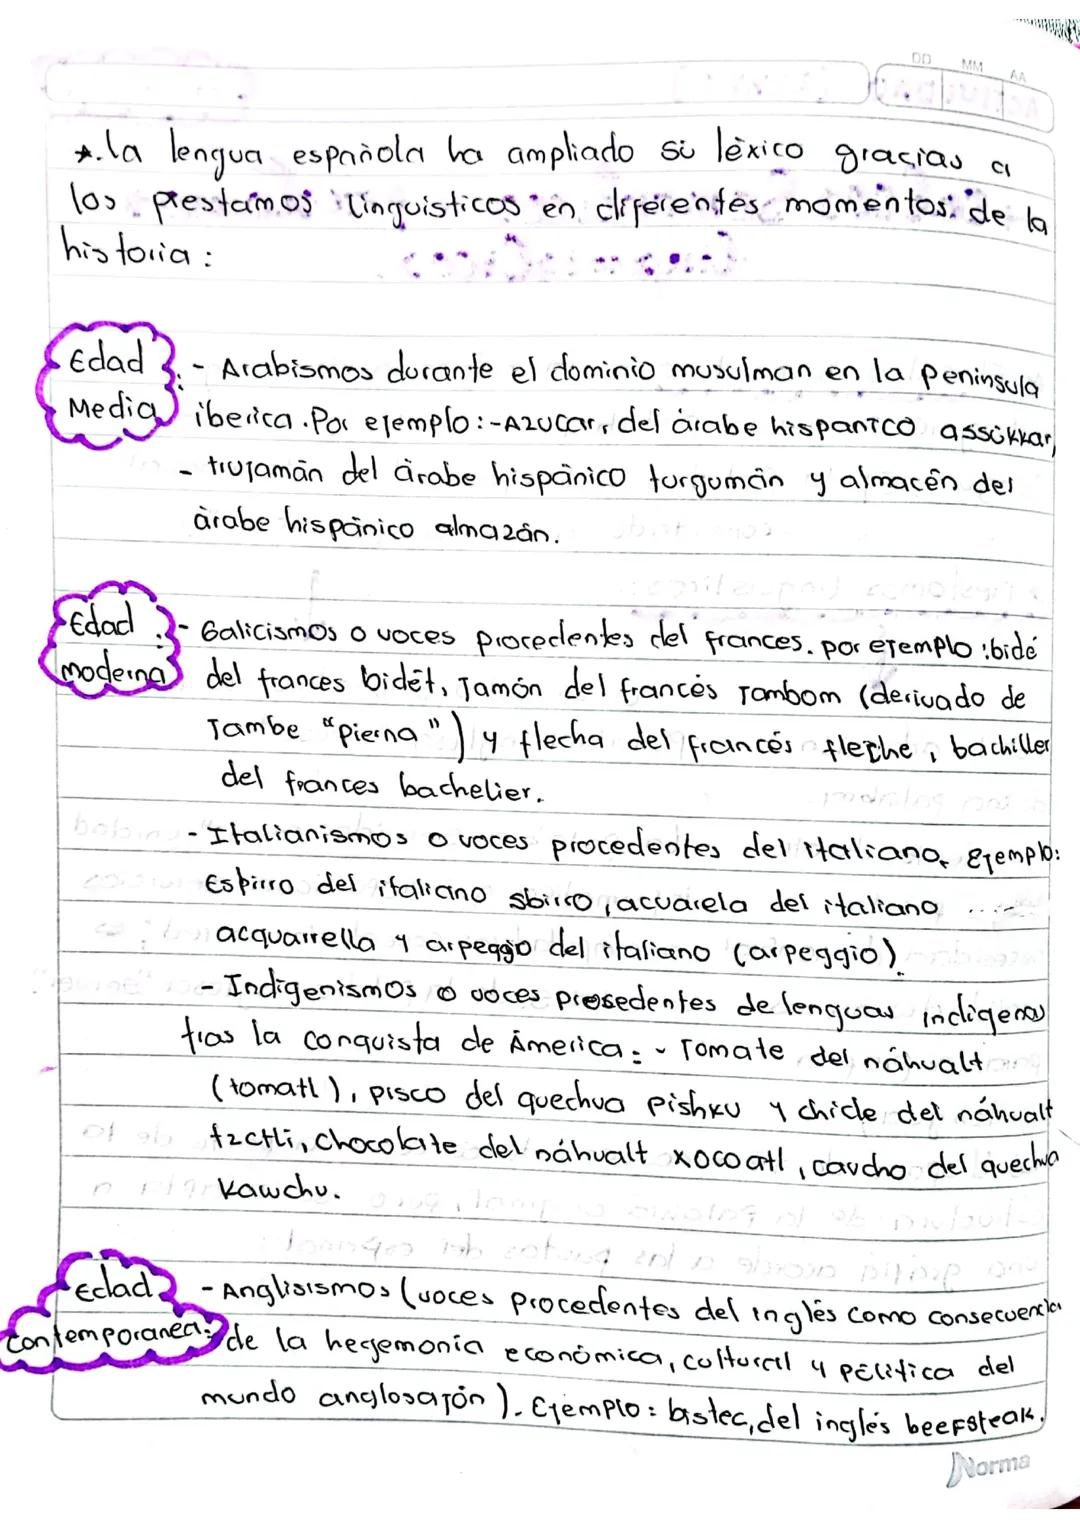 DD MM AA
*. la lengua española ha ampliado su léxico gracias a
los prestamos linguisticos en diferentes momentos de la
historia :
Edad
Media
:- Arabismos durante el dominio musulman en la Peninsula
iberica. Por ejemplo: - Azucar, del árabe hispanico assúkkar,
- trujamán del árabe hispánico turgumán y almacén del
árabe hispánico almazán.
Edad
moderna
:- Galicismos o voces procedentes del frances. por ejemplo : bidé
del frances bidét, Jamón del francés Jambom (derivado de
Jambe "pierna") y flecha del francés fleche, bachiller
del frances bachelier.
- Italianismos o voces procedentes del italiano, Ejemplo:
Esbirro del italiano sbirro, acuarela del italiano
acquarrella y arpeggio del italiano (arpeggio).
- Indigenismos o voces presedentes de lenguas indigenas
tras la conquista de America: - Tomate del náhualt
(tomatl), pisco del quechua Pishku y chicle del náhualt
tzctli, chocolate del náhualt xocoatl, caucho del quechua
Kawchu.
Edad
Contemporanea:
- Anglisismos (voces procedentes del inglés como consecuencia
de la hegemonia económica, cultural y política del
mundo anglosajón). Ejemplo: bistec, del inglés beefsteak.
Norma